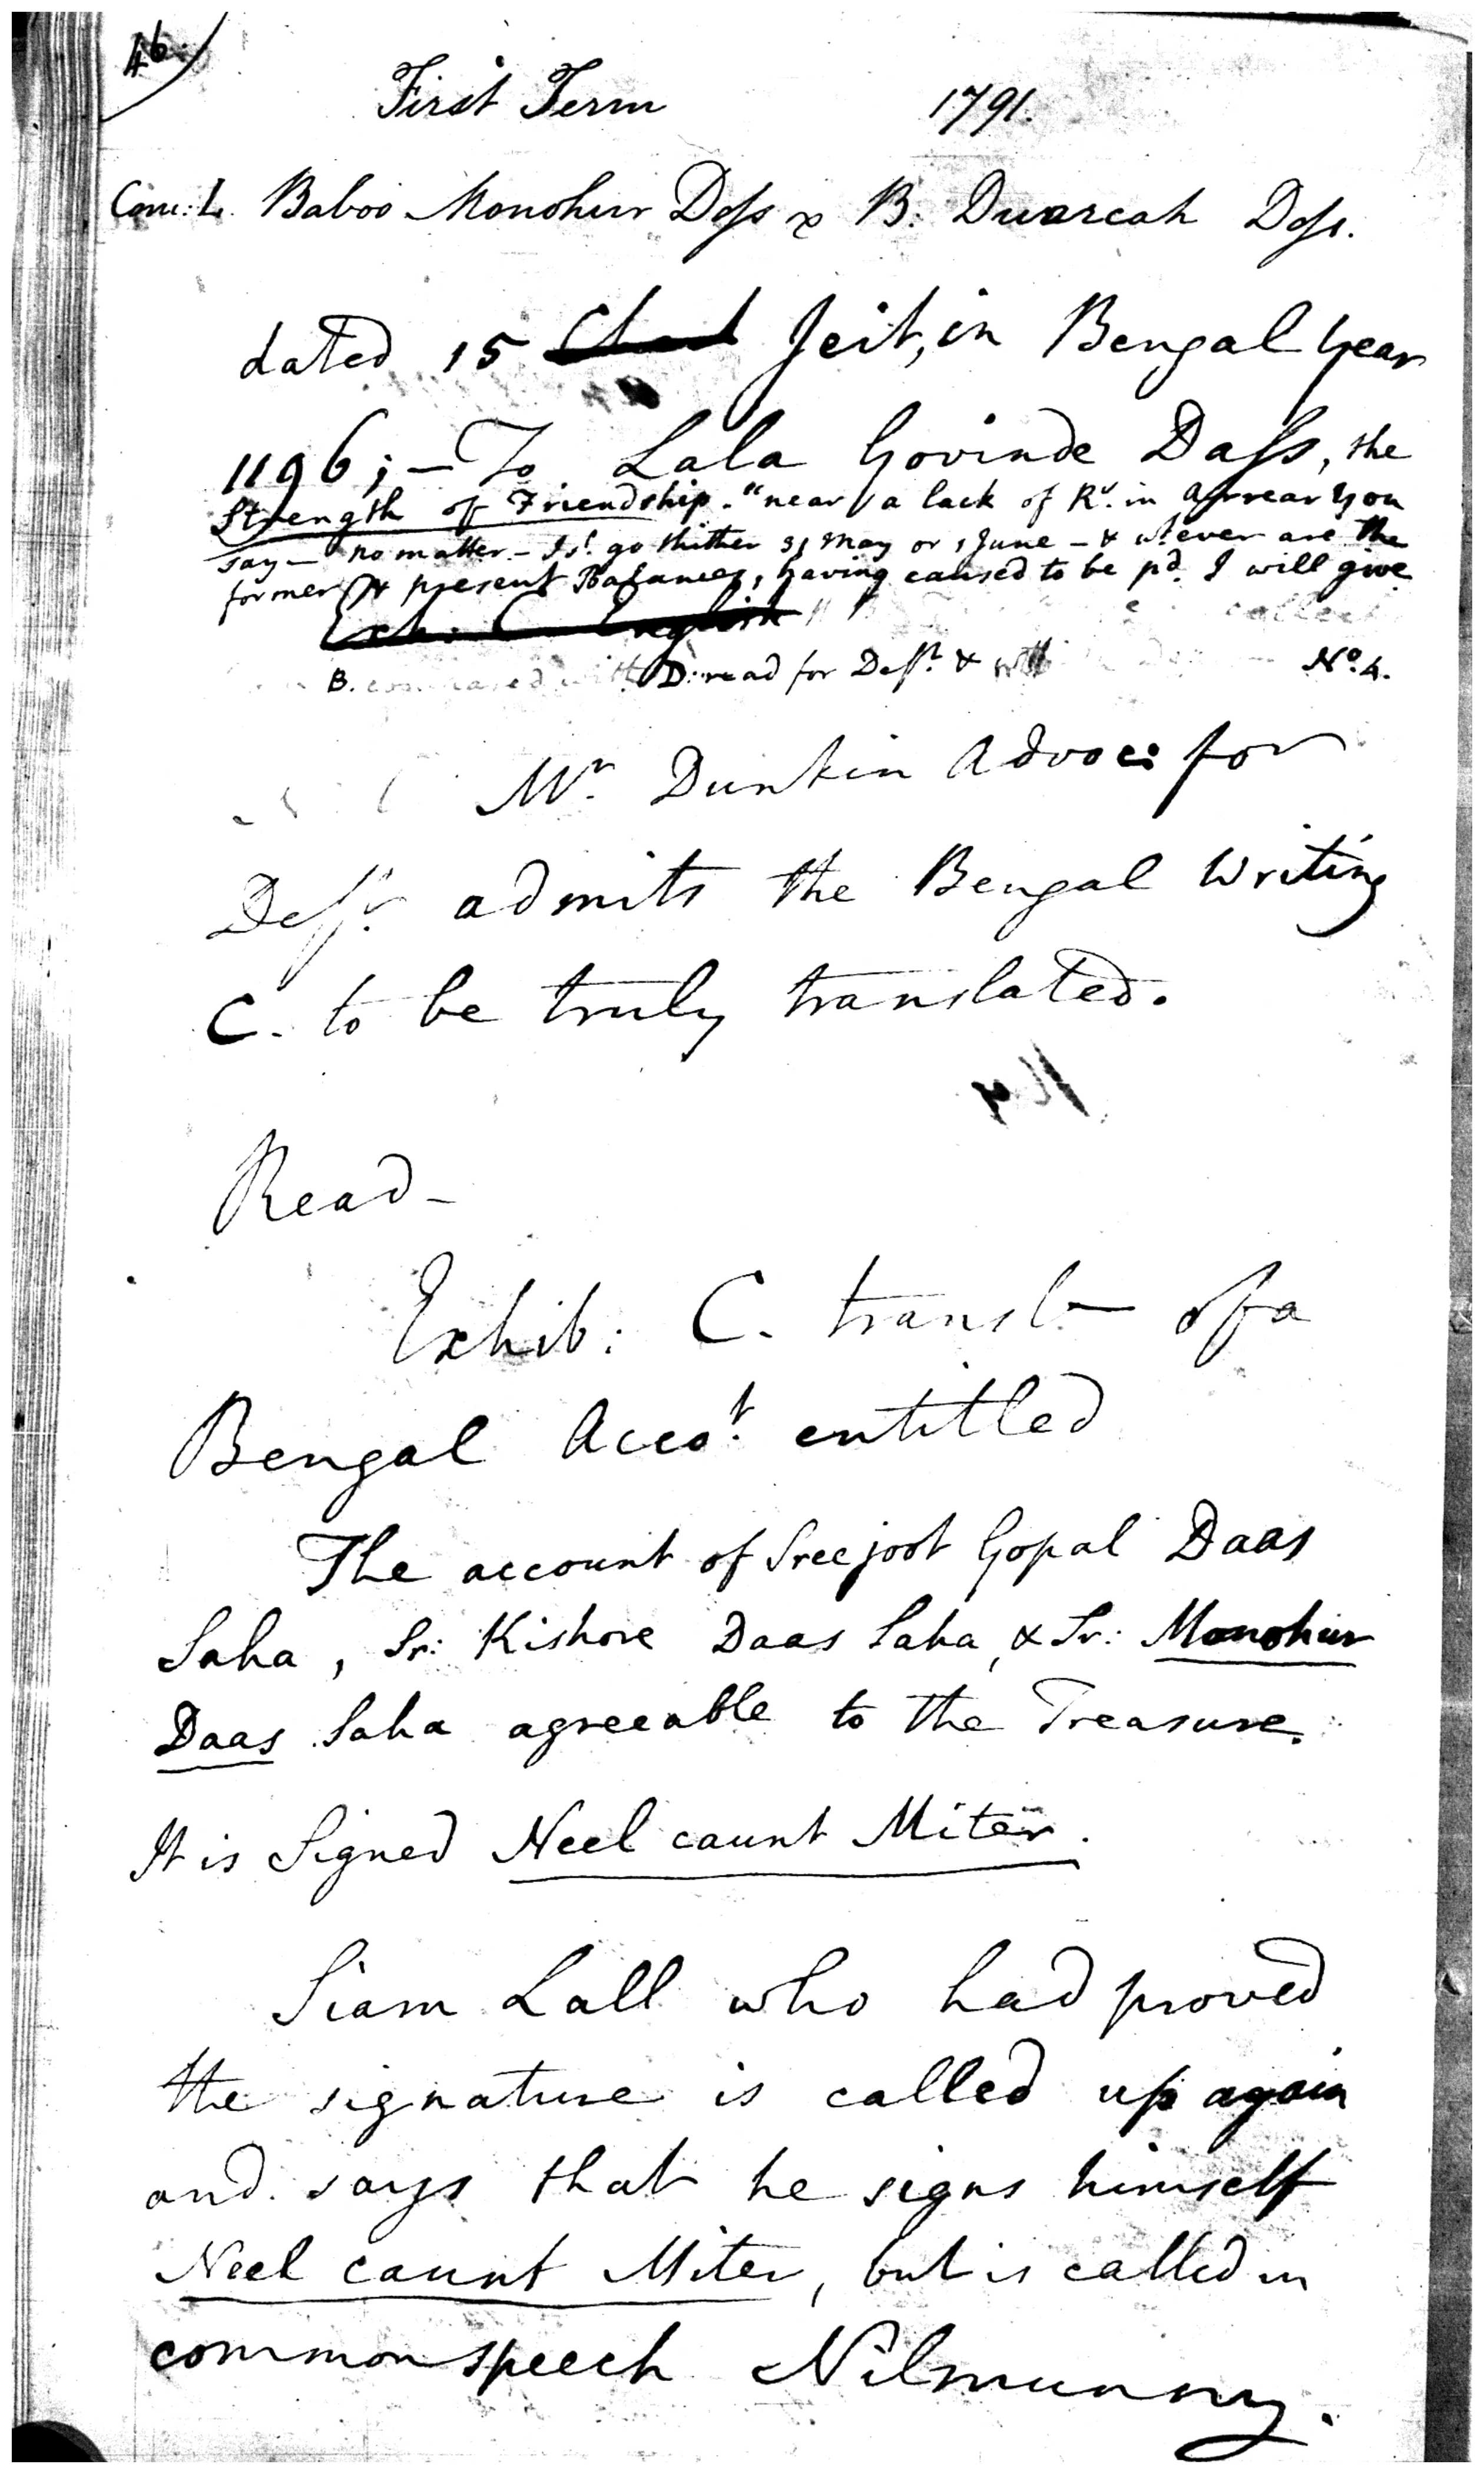 46.
First Term 1791.
Baboo Monohur Doss B. Dwarcah Doss.
dated 15 Jeit, in Bengal year
1196; — To Lala Govinde Dass, the
Strength of Friendship. "near a lack of Rs. in Arrear you
say — no matter — go thither 31 May or 1 June — & wtever are the
former & present Balances, having caused to be pd. I will give
Exh: C English
B. compared with D. read for Deft. & No. 4.
Mr. Dunkin Advoc: for
Deft. admits the Bengal writing
C. to be truly translated.
Read —
Exhib: C. transl— of a
Bengal Accot. entitled
The account of Sreejoot Gopal Daas
Saha, Sr: Kishore Daas Saha, & Sr: Monohur
Daas Saha agreeable to the Treasure.
It is Signed Neel caunt Miter.
Siam Lall who had proved
the signature is called up again
and says that he signs himself
Neel caunt Miter, but is called in
common speech Nilmunny.